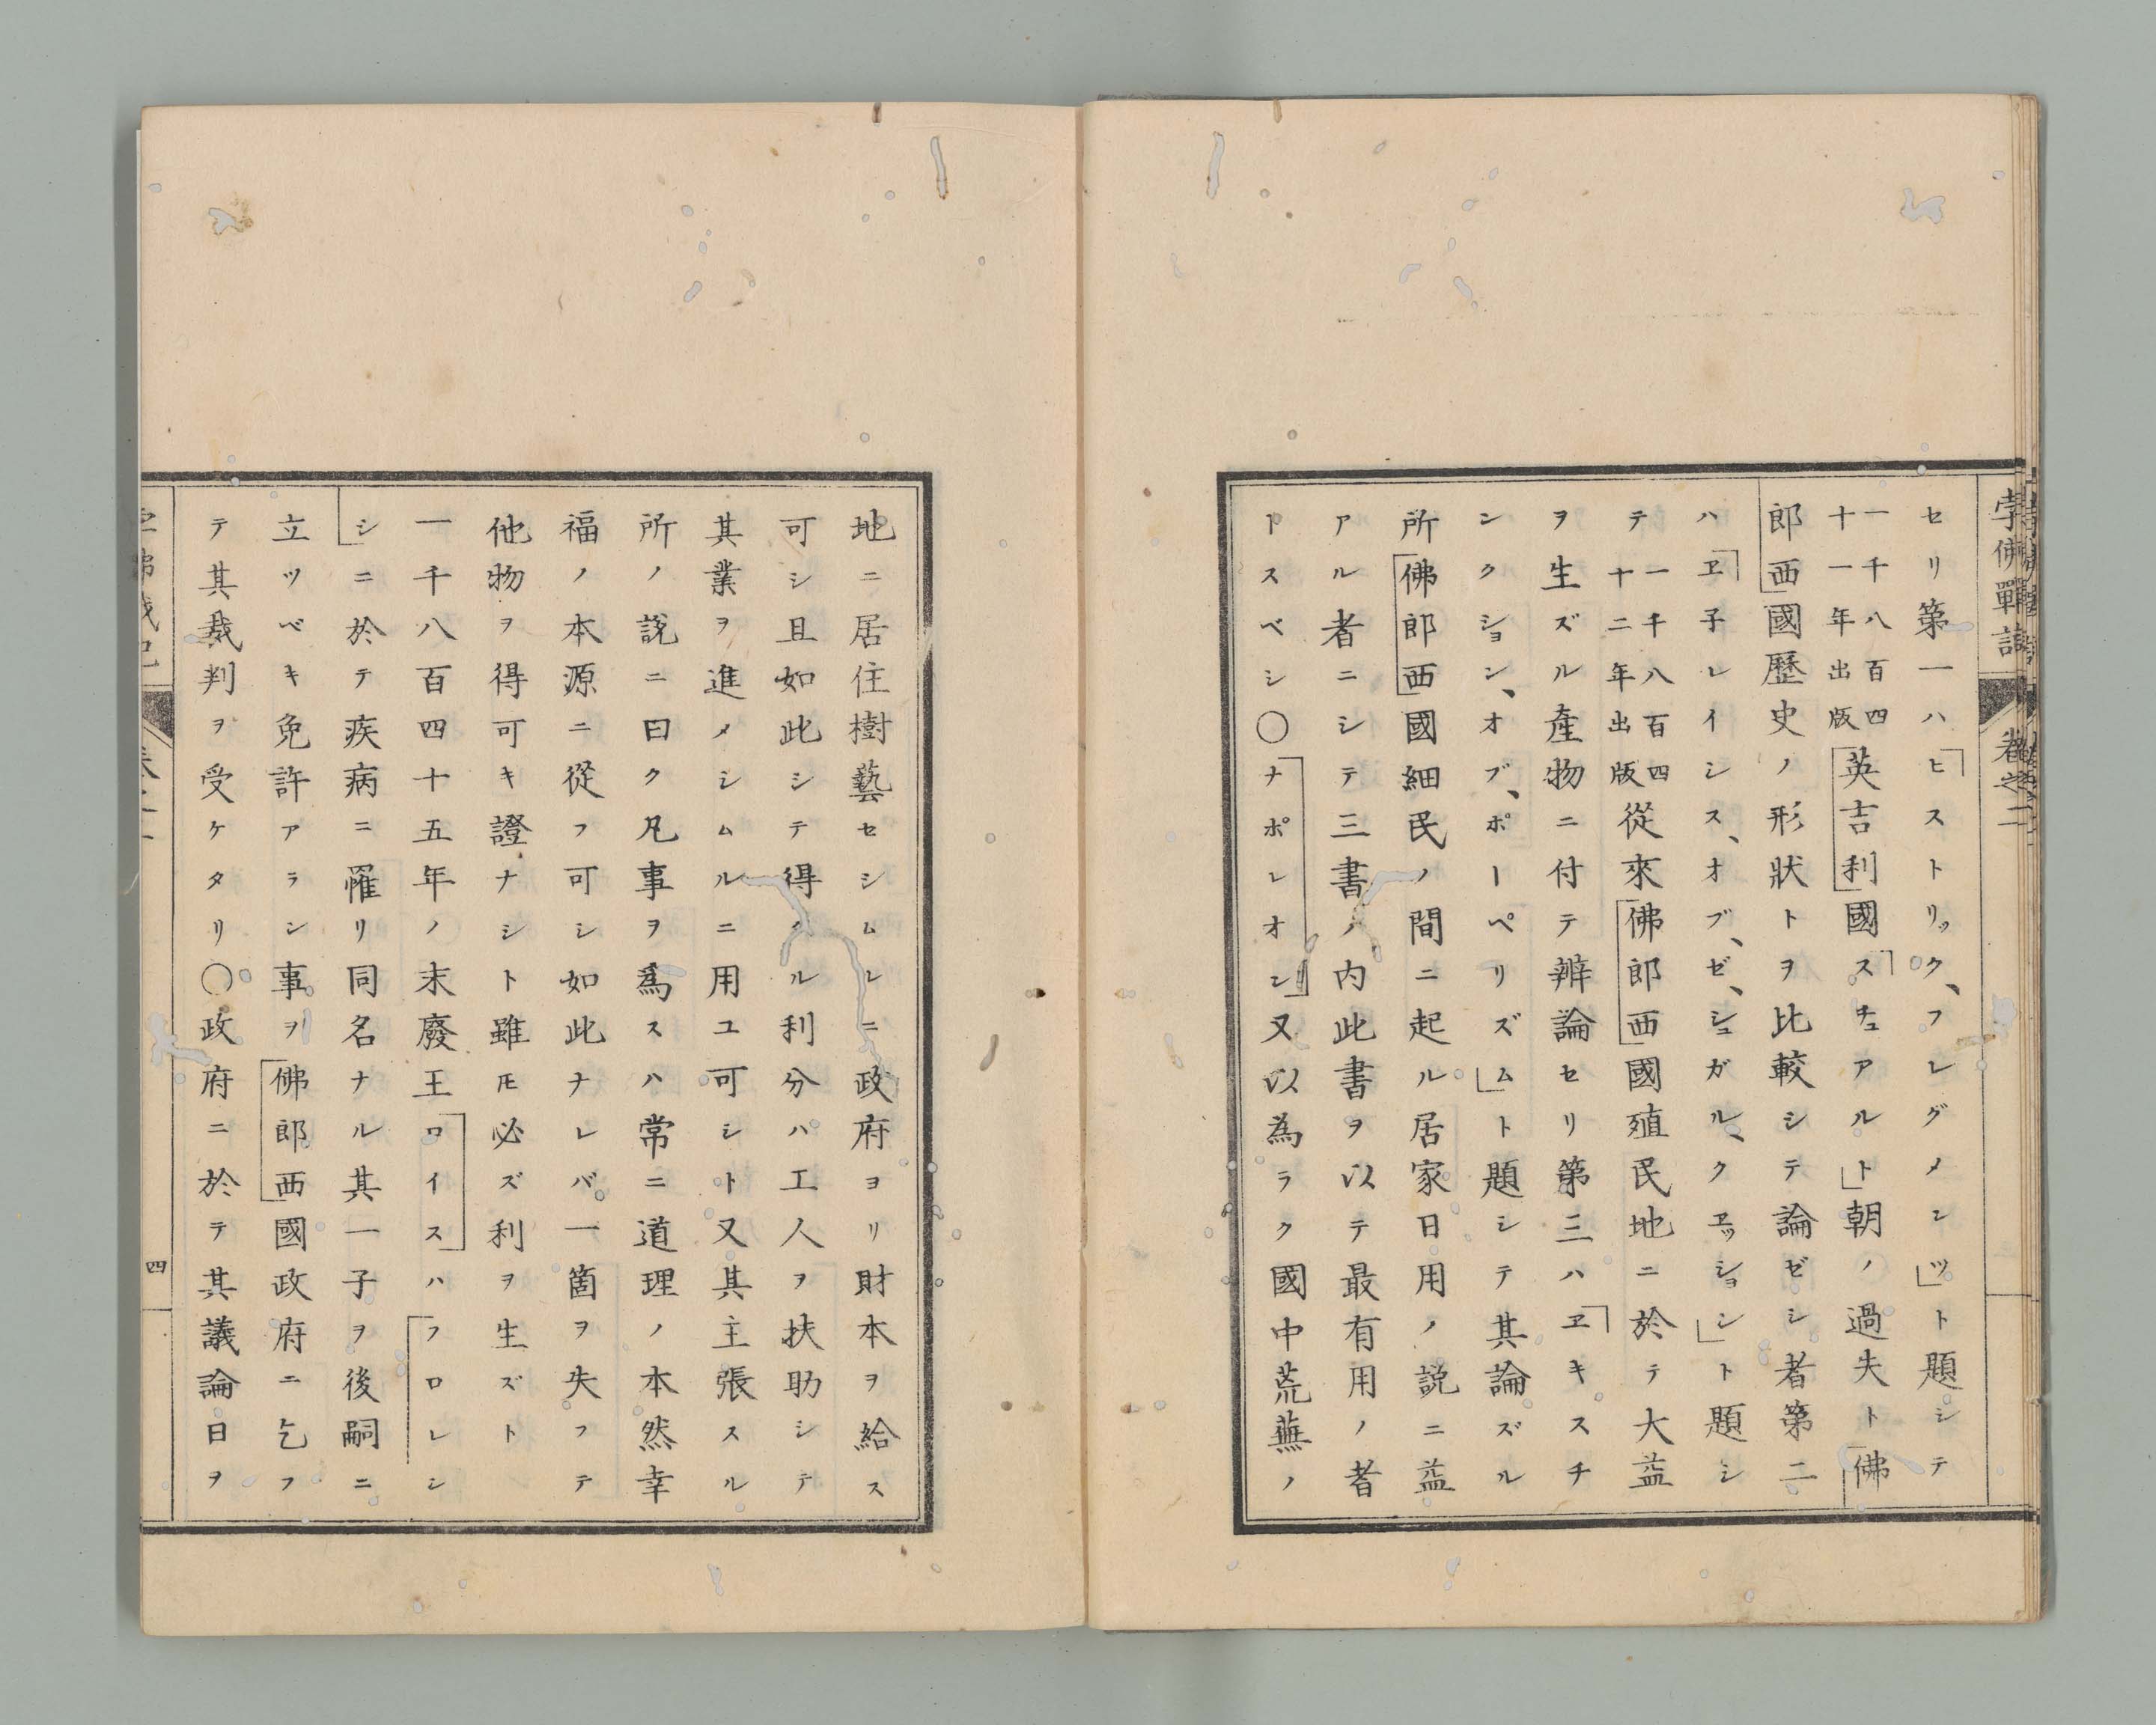 孛佛戰記
卷之二
セリ第一ハ「ヒストリック、フレグメンツ」ト題シテ
一千八百四
十一年出版
「英吉利」國「スチュアルト」朝ノ過失ト「佛
郎西」國歷史ノ形狀トヲ比較シテ論ゼシ者第二
ハ「ヱ子レイシス、オブ、ゼ、シュガル、クヱッション」ト題シ
テ
一千八百四
十二年出版
從來「佛郎西」國殖民地ニ於テ大益
ヲ生ズル產物ニ付テ辨論セリ第三ハ「ヱキスチ
ンクション、オブ、ポーペリズム」ト題シテ其論ズル
所「佛郎西」國細民ノ間ニ起ル居家日用ノ説ニ益
アル者ニシテ三書ノ内此書ヲ以テ最有用ノ者
トスベシ○「ナポレオン」又以為ラク國中荒蕪ノ
地ニ居住樹藝セシムレニ政府ヨリ財本ヲ給ス
可シ且如此シテ得タル利分ハ工人ヲ扶助シテ
其業ヲ進メシムルニ用ユ可シト又其主張スル
所ノ説ニ曰ク凡事ヲ為スハ常ニ道理ノ本然幸
福ノ本源ニ從フ可シ如此ナレバ一箇ヲ失フテ
他物ヲ得可キ證ナシト雖モ必ズ利ヲ生ズト
一千八百四十五年ノ末廢王「ロイス」ハ「フロレシ
シ」ニ於テ疾病ニ罹リ同名ナル其一子ヲ後嗣ニ
立ツベキ免許アラン事ヲ「佛郎西」國政府ニ乞フ
テ其裁判ヲ受ケタリ○政府ニ於テ其議論日ヲ
四